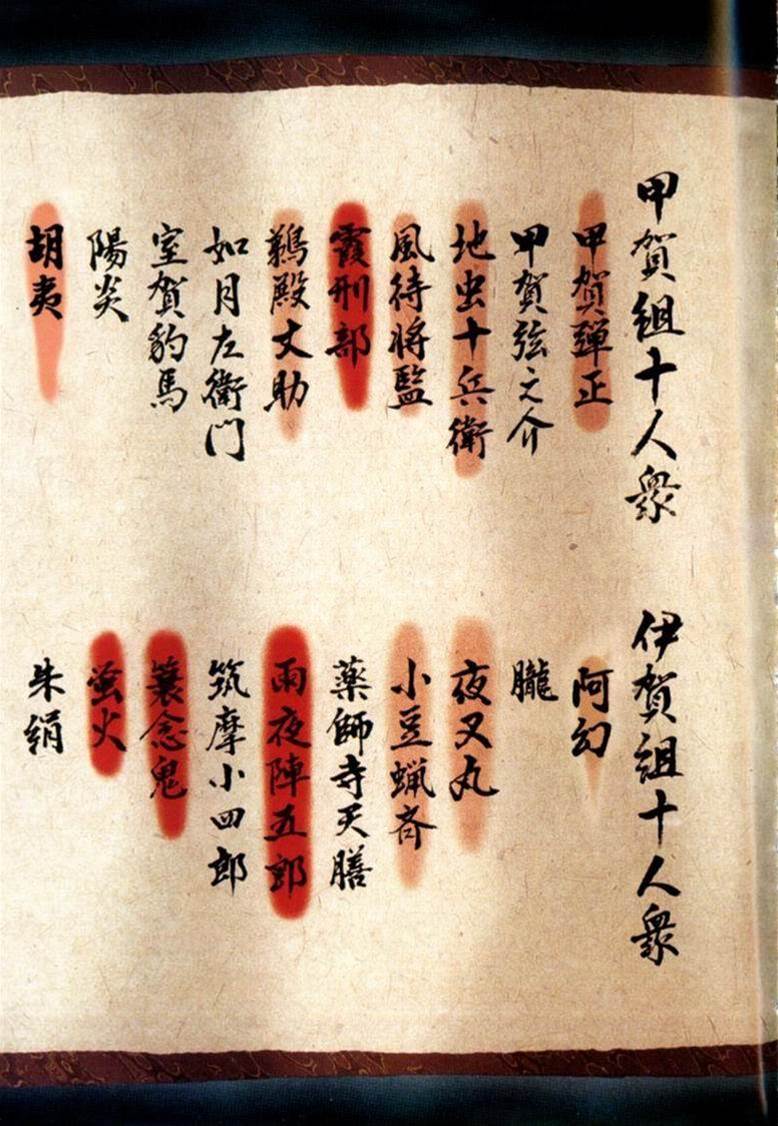 甲賀組十人衆
甲賀弾正
甲賀弦之介
地虫十兵衛
風待将監
霞刑部
鵜殿丈助
如月左衛門
室賀豹馬
陽炎
胡夷
伊賀組十人衆
阿幻
朧
夜叉丸
小豆蝋斉
薬師寺天膳
雨夜陣五郎
筑摩小四郎
蓑念鬼
蛍火
朱絹